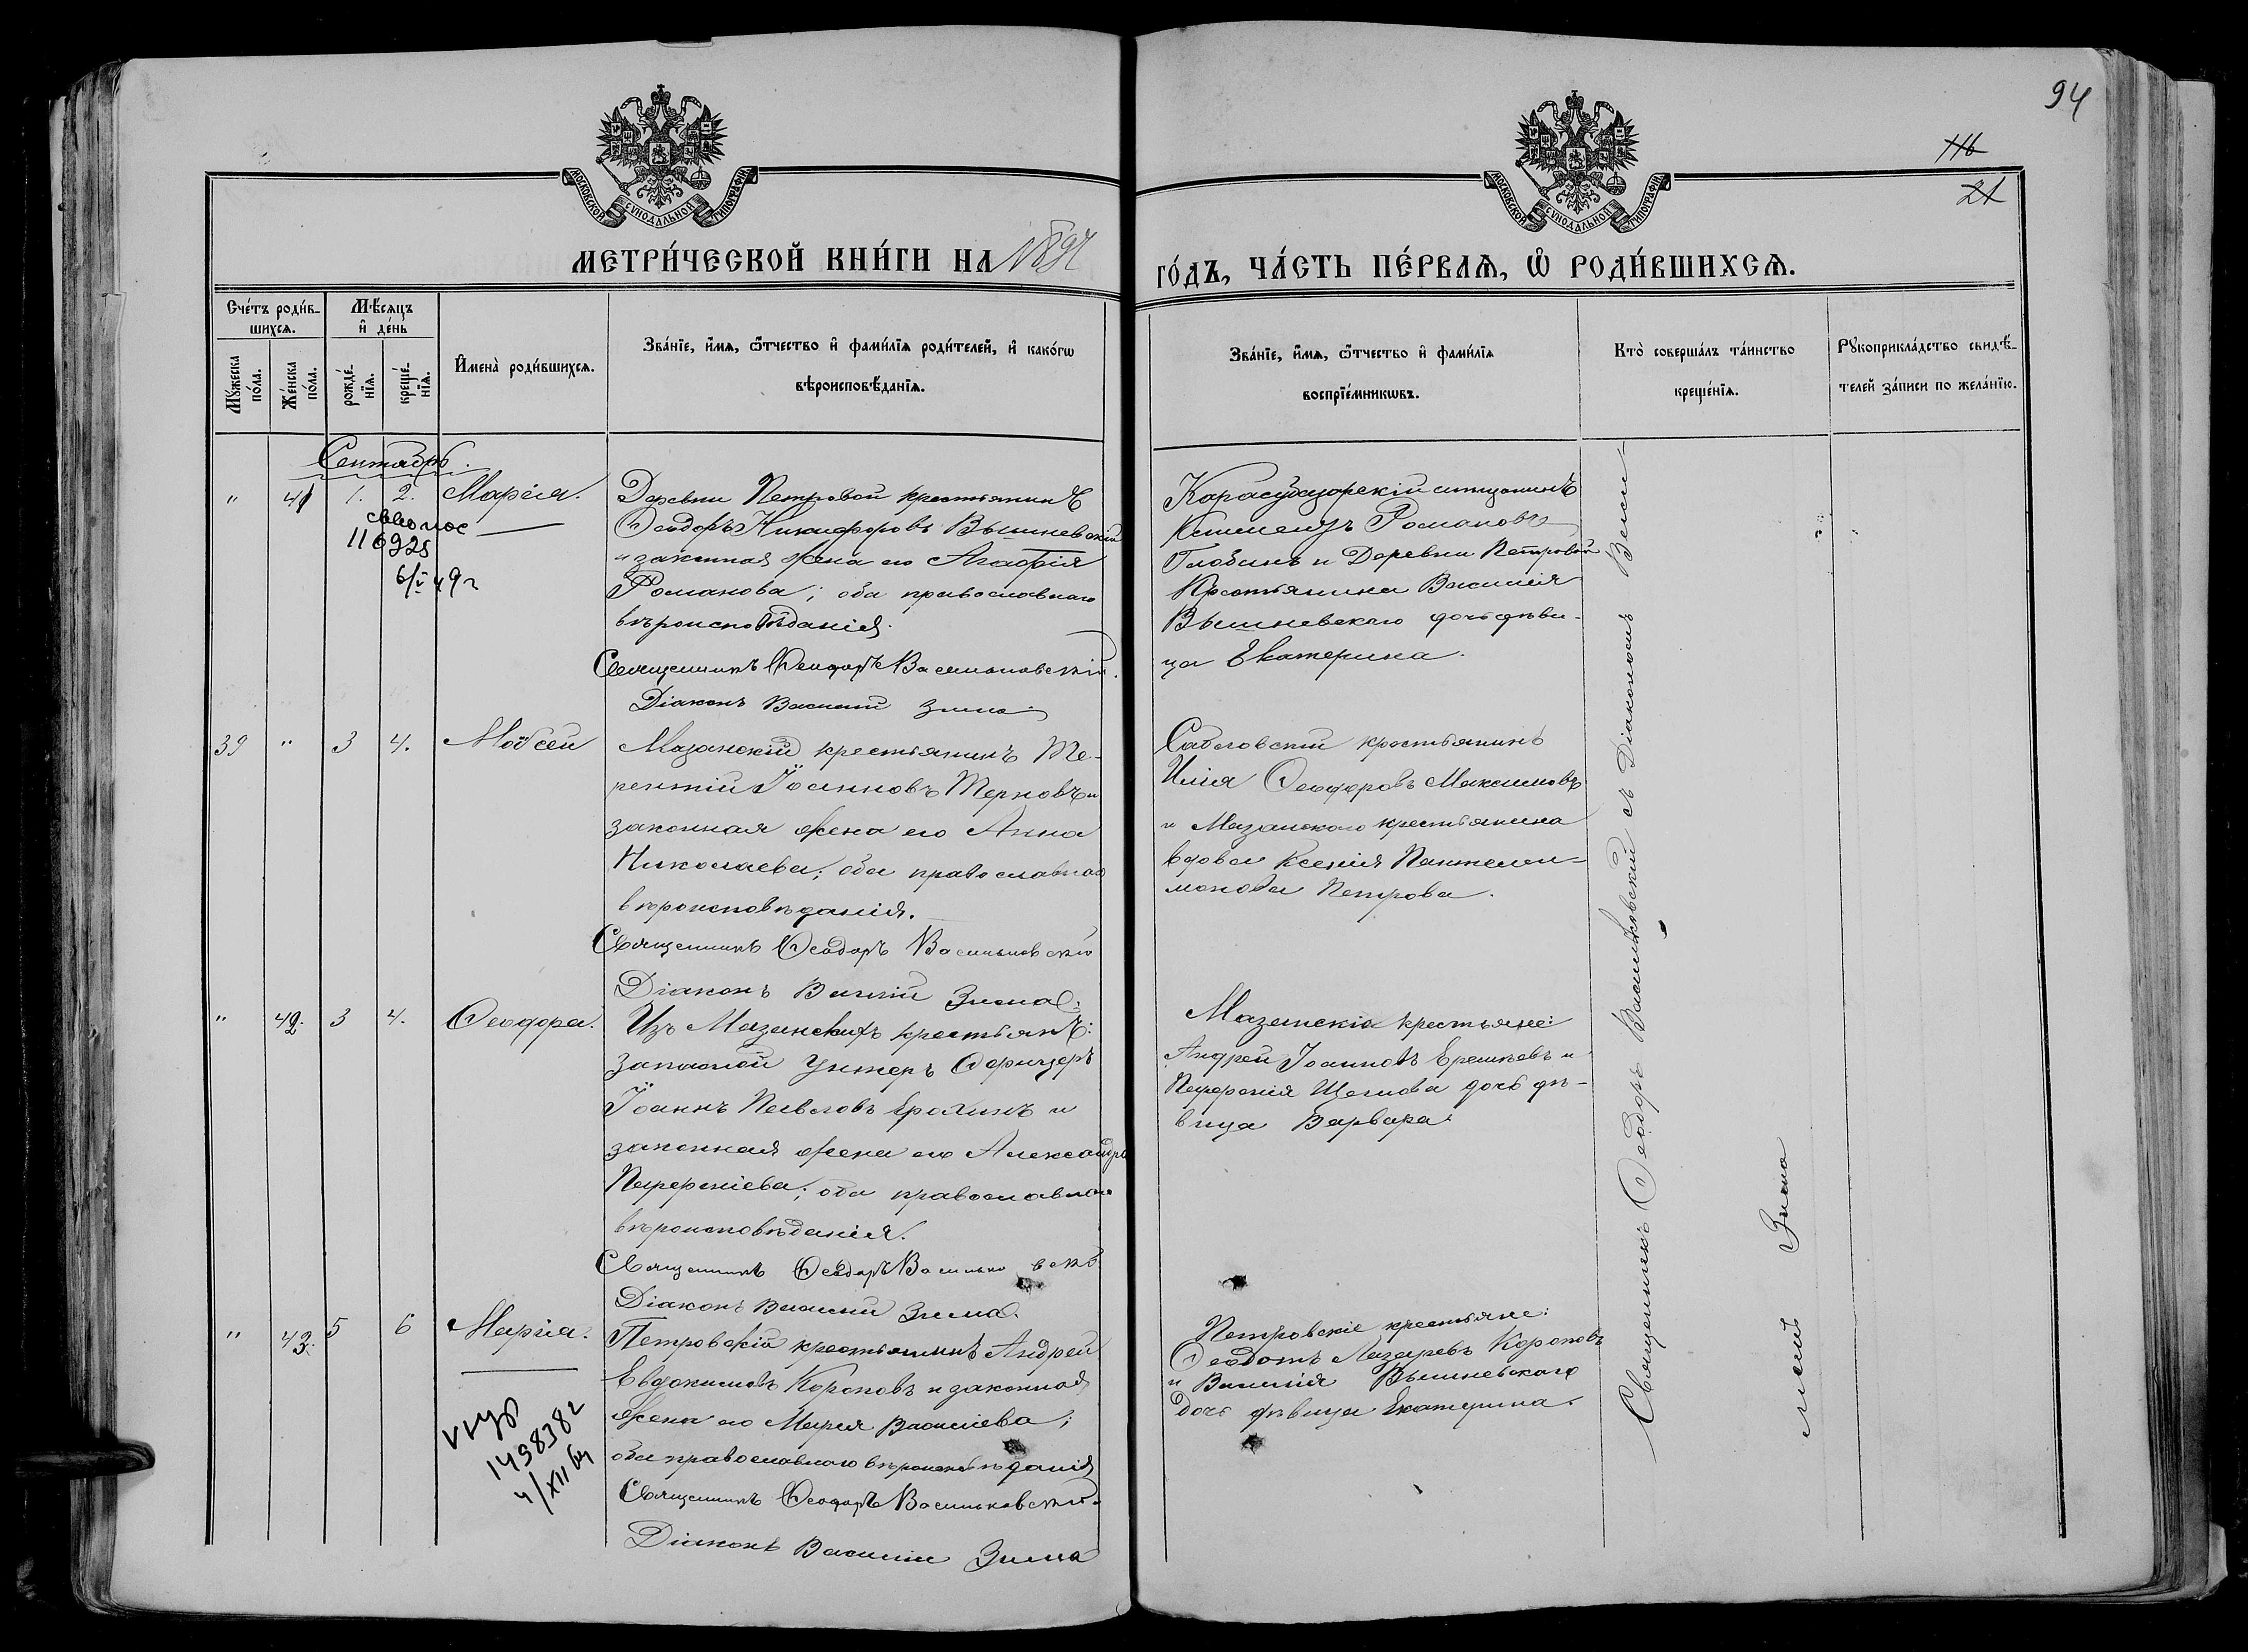 94
116
21
МОСКОВСКОЙ СѴНОДАЛЬНОЙ ТИПОГРАФІИ
МОСКОВСКОЙ СѴНОДАЛЬНОЙ ТИПОГРАФІИ
МЕТРИ́ЧЕСКОЙ КНИ́ГИ НА 1894
ГО́ДЪ, ЧА́СТЬ ПЕ́РВАЯ, Ѡ РОДИ́ВШИХСЯ.
Сче́тъ роди́в-
шихся.
Мѣ́сяцъ
и де́нь
Мꙋ́жеска по́ла.
Же́нска по́ла.
рожде́-
нїя.
креще́-
нїя.
Имена̀ роди́вшихся.
Зва́нїе, и́мя, ѻ́тчество и фами́лїя роди́телей, и како́гѡ
вѣроисповѣ́данїя.
Зва́нїе, и́мя, ѻ́тчество и фами́лїя
воспрїе́мникѡвъ.
Кто̀ соверша́лъ та́инство
креще́нїя.
Рꙋкоприкла́дство свидѣ́-
телей за́писи по жела́нїю.
Сентябрь.
" 41 1. 2. Марія.
116925
6/V 49 г
Деревни Петровой крестьянинъ
Ѳеодоръ Никифоровъ Вышневскій
и законная жена его Агафія
Романова; оба православнаго
вѣроисповѣданія.
Священникъ Ѳеодоръ Васильковскій.
Діаконъ Василій Зима
Карасубазарскій мѣщанинъ
Романовъ
и Деревни Петровой
Крестьянина Василія
Вышневскаго дочь дѣви-
ца Екатерина.
39 " 3 4. Мойсей
Мазанскій крестьянинъ Те-
рентій Іоанновъ Терновъ и
законная жена его Анна
Николаева; оба православнаго
вѣроисповѣданія.
Священникъ Ѳеодоръ Васильковскій
Діаконъ Василій Зима
крестьянинъ
Илія Ѳеодоровъ Максимовъ
и Мазанскаго крестьянина
вдова Ксенія Пантелеи-
монова Петрова.
" 42. 3 4. Ѳеодора.
Изъ Мазанскихъ крестьянъ:
запасной Унтеръ Офицеръ
Іоаннъ Павловъ Ерохинъ и
законная жена его Александра
Парфеніева; оба православнаго
вѣроисповѣданія.
Священникъ Ѳеодоръ Васильковскій
Діаконъ Василій Зима.
Мазанскіе крестьяне:
Андрей Іоанновъ и
Парфенія дочь дѣ-
вица Варвара.
" 43. 5 6 Марія.
1498382
4/XII 64
Петровскій крестьянинъ Андрей
Евдокимовъ Короповъ и законная
жена его Марія Василіева;
оба православнаго вѣроисповѣданія
Священникъ Ѳеодоръ Васильковскій.
Діаконъ Василій Зима
Петровскіе крестьяне:
Ѳеодотъ Лазаревъ Короповъ
и Василія Вышневскаго
дочь дѣвица Екатерина.
Священникъ Ѳеодоръ Васильковскій съ Діакономъ Васи-
ліемъ Зима